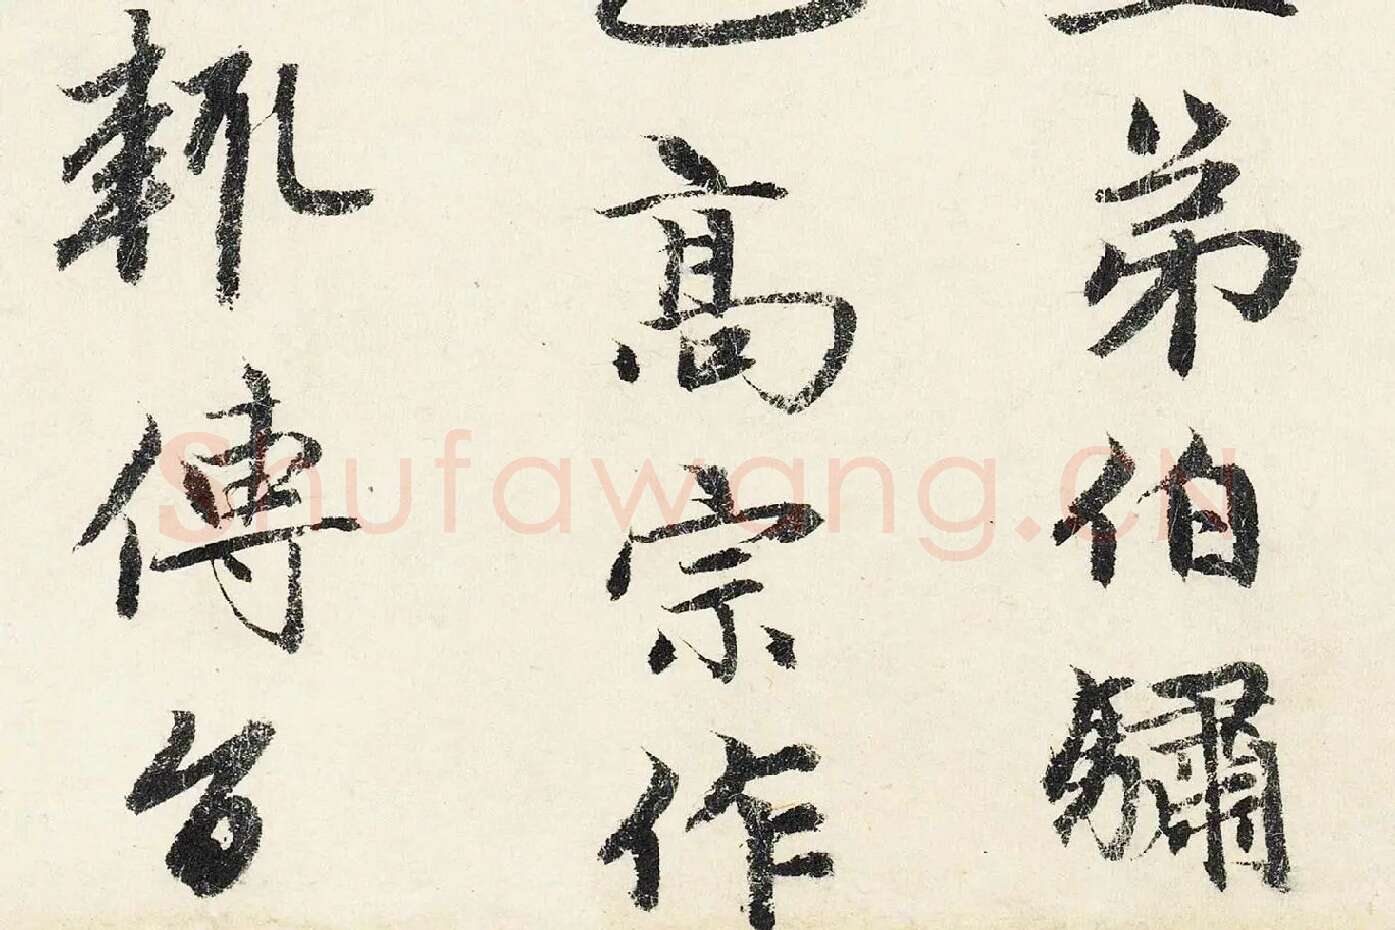 弟伯驌
高宗作
輒傳台
Shufawang.CN